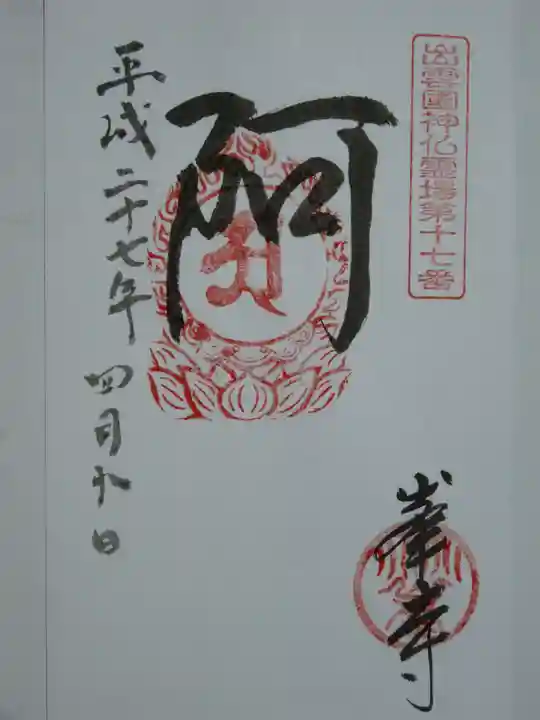 出雲國神仏霊場第十七番
阿
峯寺
平成二十七年四月九日